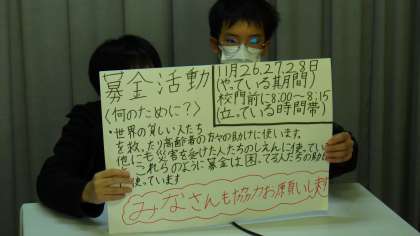 募金活動
<何のために?>
・世界の貧しい人たち
を救ったり高齢者の方々の助けに使います。
他にも災害を受けた人たちのしえんに使ってい
これらのように募金は困ってる人たちの助け
に使っています
11月26.27.28日
(やっている期間)
校門前に8:00~8:15
(立っている時間帯)
みなさんも協力お願いします